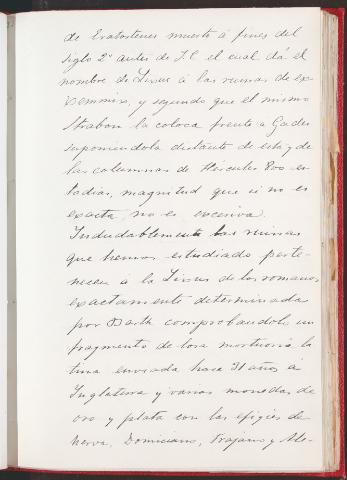 de Eratostenes muerto á fines del
siglo 2º antes de J.C. el cual dá el
nombre de Lixus á las ruinas de
y segundo que el mismo
Strabon la coloca frente a Gades
suponiendola distante de esta y de
las columnas de Hércules 800 es-
tadias, magnitud que si no es
exacta, no es excesiva.
Indudablemente las ruinas
que hemos estudiado perte-
necen á la Lixus de los romanos,
exactamente determinada
por Barth comprobandolo un
fragmento de losa mortuoria la
tina enviada hace 31 años á
Inglaterra y varias monedas de
oro y plata con las efigies de
Nerva, Domiciano, Trajano y Ale-